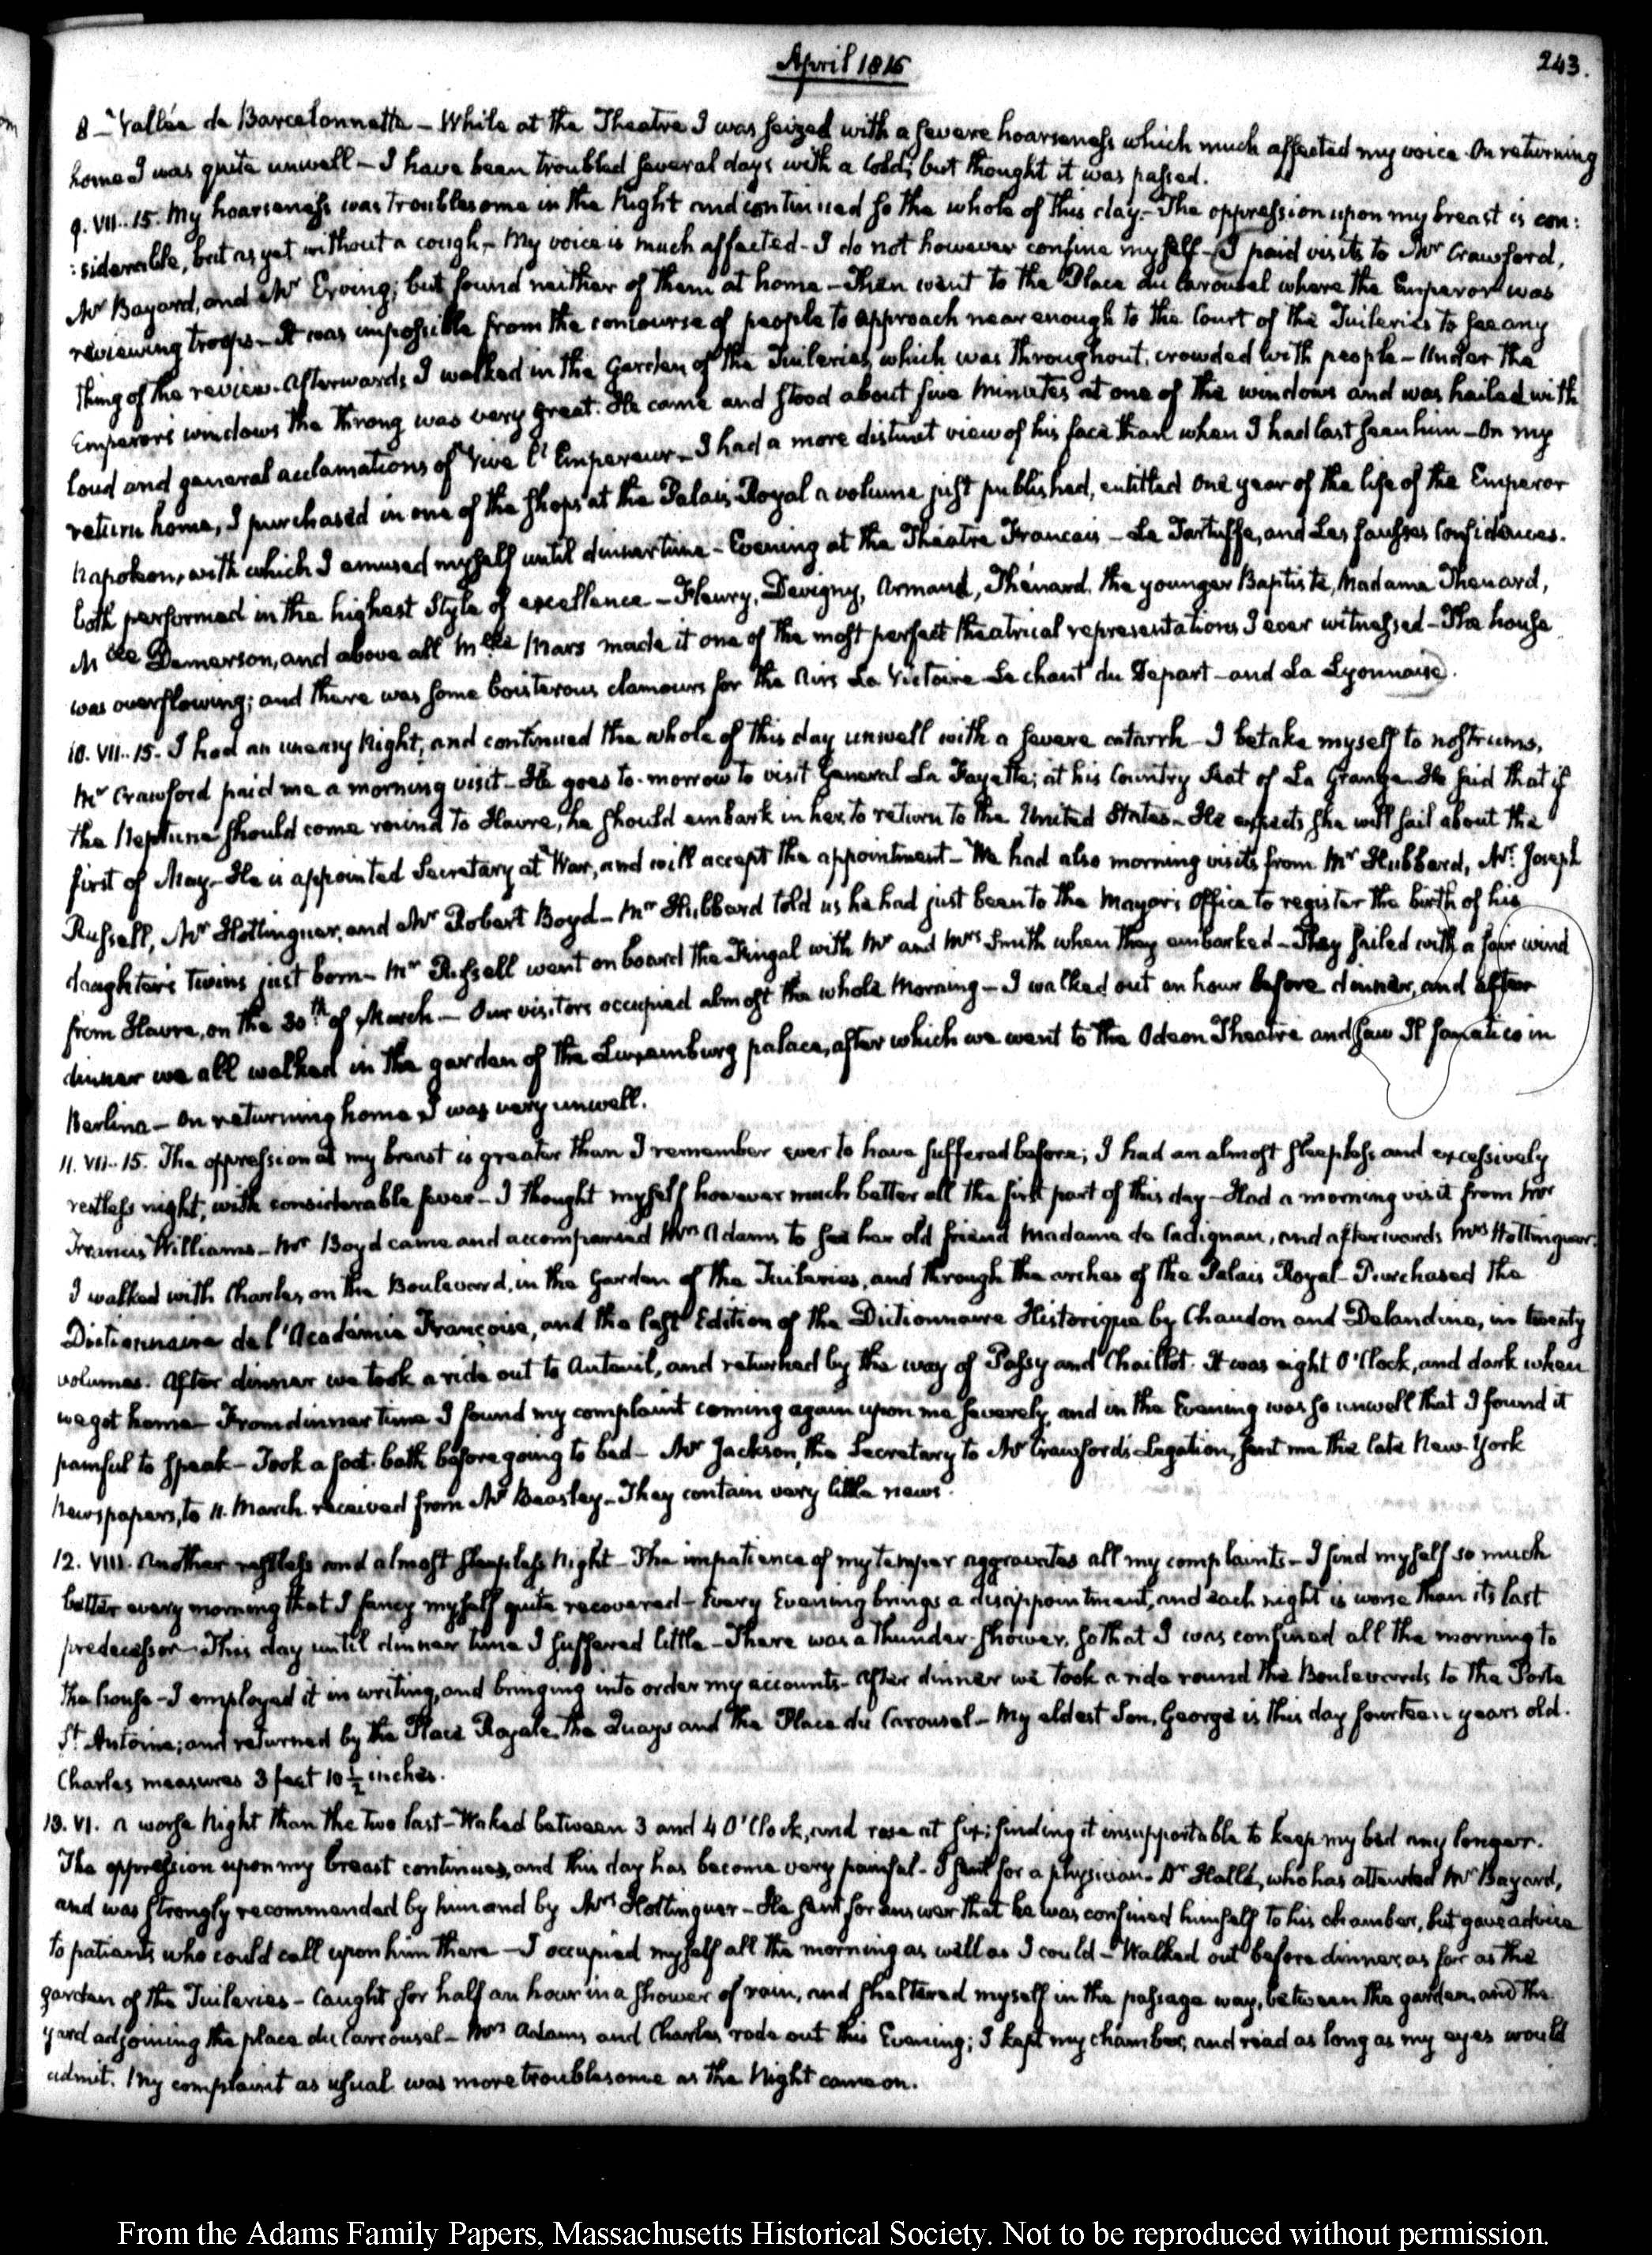 April 1815
243.
8 – Vallée de Barcelonnette – While at the Theatre I was seized with a severe hoarseness which much affected my voice. On returning
home I was quite unwell – I have been troubled several days with a cold; but thought it was passed.
9. VII..15. My hoarseness was troublesome in the Night and continued so the whole of this day. – The oppression upon my breast is con:
:siderable, but as yet without a cough – My voice is much affected – I do not however confine myself – I paid visits to Mr Crawford,
Mr Bayard, and Mr Erving; but found neither of them at home – Then went to the Place du Carousel where the Emperor was
reviewing troops – It was impossible from the concourse of people to approach near enough to the Court of the Tuileries to see any
thing of the review. Afterwards I walked in the Garden of the Tuileries, which was throughout, crowded with people – Under the
Emperor's windows the throng was very great. He came and stood about five minutes at one of the windows and was hailed with
loud and general acclamations of Vive l'Empereur – I had a more distinct view of his face than when I had last seen him – On my
return home, I purchased in one of the shops at the Palais Royal a volume just published, entitled One year of the life of the Emperor
Napoleon, with which I amused myself until dinner time – Evening at the Théatre Francais – Le Tartuffe, and Les fausses Confidences.
both performed in the highest Style of excellence – Fleury, Devigny, Armand, Thénard, the younger Baptiste, Madame Thenard,
Mlle Demerson, and above all Mlle Mars made it one of the most perfect theatrical representations I ever witnessed – The house
was overflowing; and there was some boisterous clamours for the Airs La Victoire – Le chant du Depart – and La Lyonnaise.
10. VII..15. I had an uneasy Night, and continued the whole of this day unwell with a severe catarrh – I betake myself to nostrums.
Mr Crawford paid me a morning visit – He goes to-morrow to visit General La Fayette; at his Country Seat of La Grange. He said that if
the Neptune should come round to Havre, he should embark in her, to return to the United States – He expects she will sail about the
first of May – He is appointed Secretary at War, and will accept the appointment – We had also morning visits from Mr Hubbard, Mr Joseph
Russell, Mr Hottinguer, and Mr Robert Boyd – Mr Hubbard told us he had just been to the Mayor's Office to register the birth of his
daughter's Twins just born – Mr Russell went on board the Fingal with Mr and Mrs Smith when they embarked – They sailed with a fair wind
from Havre, on the 30th of March – Our visitors occupied almost the whole Morning – I walked out an hour before dinner, and after
dinner we all walked in the garden of the Luxemburg palace, after which we went to the Odeon Theatre and saw Il fanatico in
Berlina – On returning home I was very unwell.
11. VII..15. The oppression at my breast is greater than I remember ever to have suffered before; I had an almost sleepless and excessively
restless night, with considerable fever – I thought myself however much better all the first part of this day – Had a morning visit from Mr
Francis Williams – Mr Boyd came and accompanied Mrs Adams to see her old friend Madame de Cadignan, and afterwards Mrs Hottinguer.
I walked with Charles, on the Boulevard, in the Garden of the Tuileries, and through the arches of the Palais Royal – Purchased the
Dictionnaire de l'Académie Françoise, and the last Edition of the Dictionnaire Historique by Chaudon and Delandine, in twenty
volumes. After dinner we took a ride out to Auteuil, and returned by the way of Passy and Chaillot. It was eight O'Clock, and dark when
we got home – From dinner time I found my complaint coming again upon me severely, and in the Evening was so unwell that I found it
painful to speak – Took a foot bath before going to bed – Mr Jackson, the Secretary to Mr Crawford's Legation, sent me the late New-York
Newspapers, to 11. March. received from Mr Beasley – They contain very little news.
12. VIII. Another restless and almost sleepless Night – The impatience of my temper aggravates all my complaints – I find myself so much
better every morning that I fancy myself quite recovered – Every Evening brings a disappointment, and each night is worse than its last
predecessor – This day until dinner time I suffered little – There was a thunder-shower, so that I was confined all the morning to
the house – I employed it in writing, and bringing into order my accounts – After dinner we took a ride round the Boulevards to the Porte
St Antoine; and returned by the Place Royale, the Quays and the Place du Carousel – My eldest Son, George is this day fourteen years old.
Charles measures 3 feet 10 ½ inches.
13. VI. A worse Night than the two last – Waked between 3 and 4 O'Clock, and rose at six; finding it insupportable to keep my bed any longer.
The oppression upon my breast continues, and this day has become very painful – I sent for a physician – Dr Hallé, who has attended Mr Bayard,
and was strongly recommended by him and by Mrs Hottinguer – He sent for answer that he was confined himself to his chamber, but gave advice
to patients who could call upon him there – I occupied myself all the morning as well as I could – Walked out before dinner, as far as the
garden of the Tuileries – Caught for half an hour in a shower of rain, and sheltered myself in the passage way, between the garden, and the
yard adjoining the place du Carrousel – Mrs Adams and Charles rode out this Evening; I kept my chamber, and read as long as my eyes would
admit. My complaint as usual was more troublesome as the Night came on.
From the Adams Family Papers, Massachusetts Historical Society. Not to be reproduced without permission.